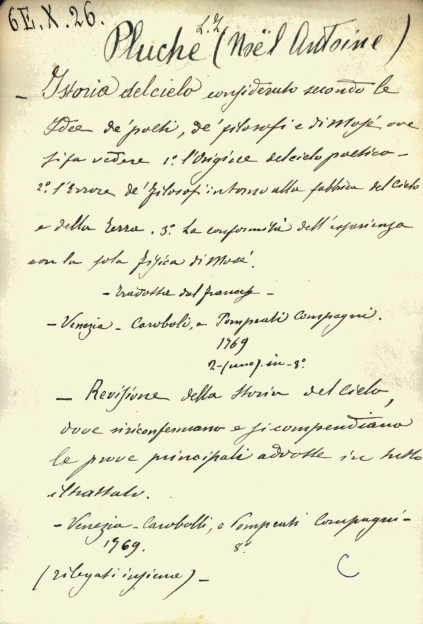 6E.X.26.
L.Z
Pluche (Noël Antoine)
- Istoria del cielo considerato secondo le
Idee de' poeti, de' filosofi e di Mosé, ove
si fa vedere 1.° l'Origine del cielo poetico -
2.° l'Errore de' filosofi intorno alla fabbrica del Cielo
e della Terra. 3.° La conformità dell'esperienza
con la sola fisica di Mosé.
- Tradotta dal francese -
- Venezia - Caroboli, e Pompeati Compagni.
1769
2 - (uno). in - 8°
- Revisione della Storia del Cielo,
dove si riconfermano e si compendiano
le prove principali addotte in tutto
il trattato.
- Venezia - Carobolli, e Pompeati Compagni -
1769. 8°
(rilegati insieme) -
C